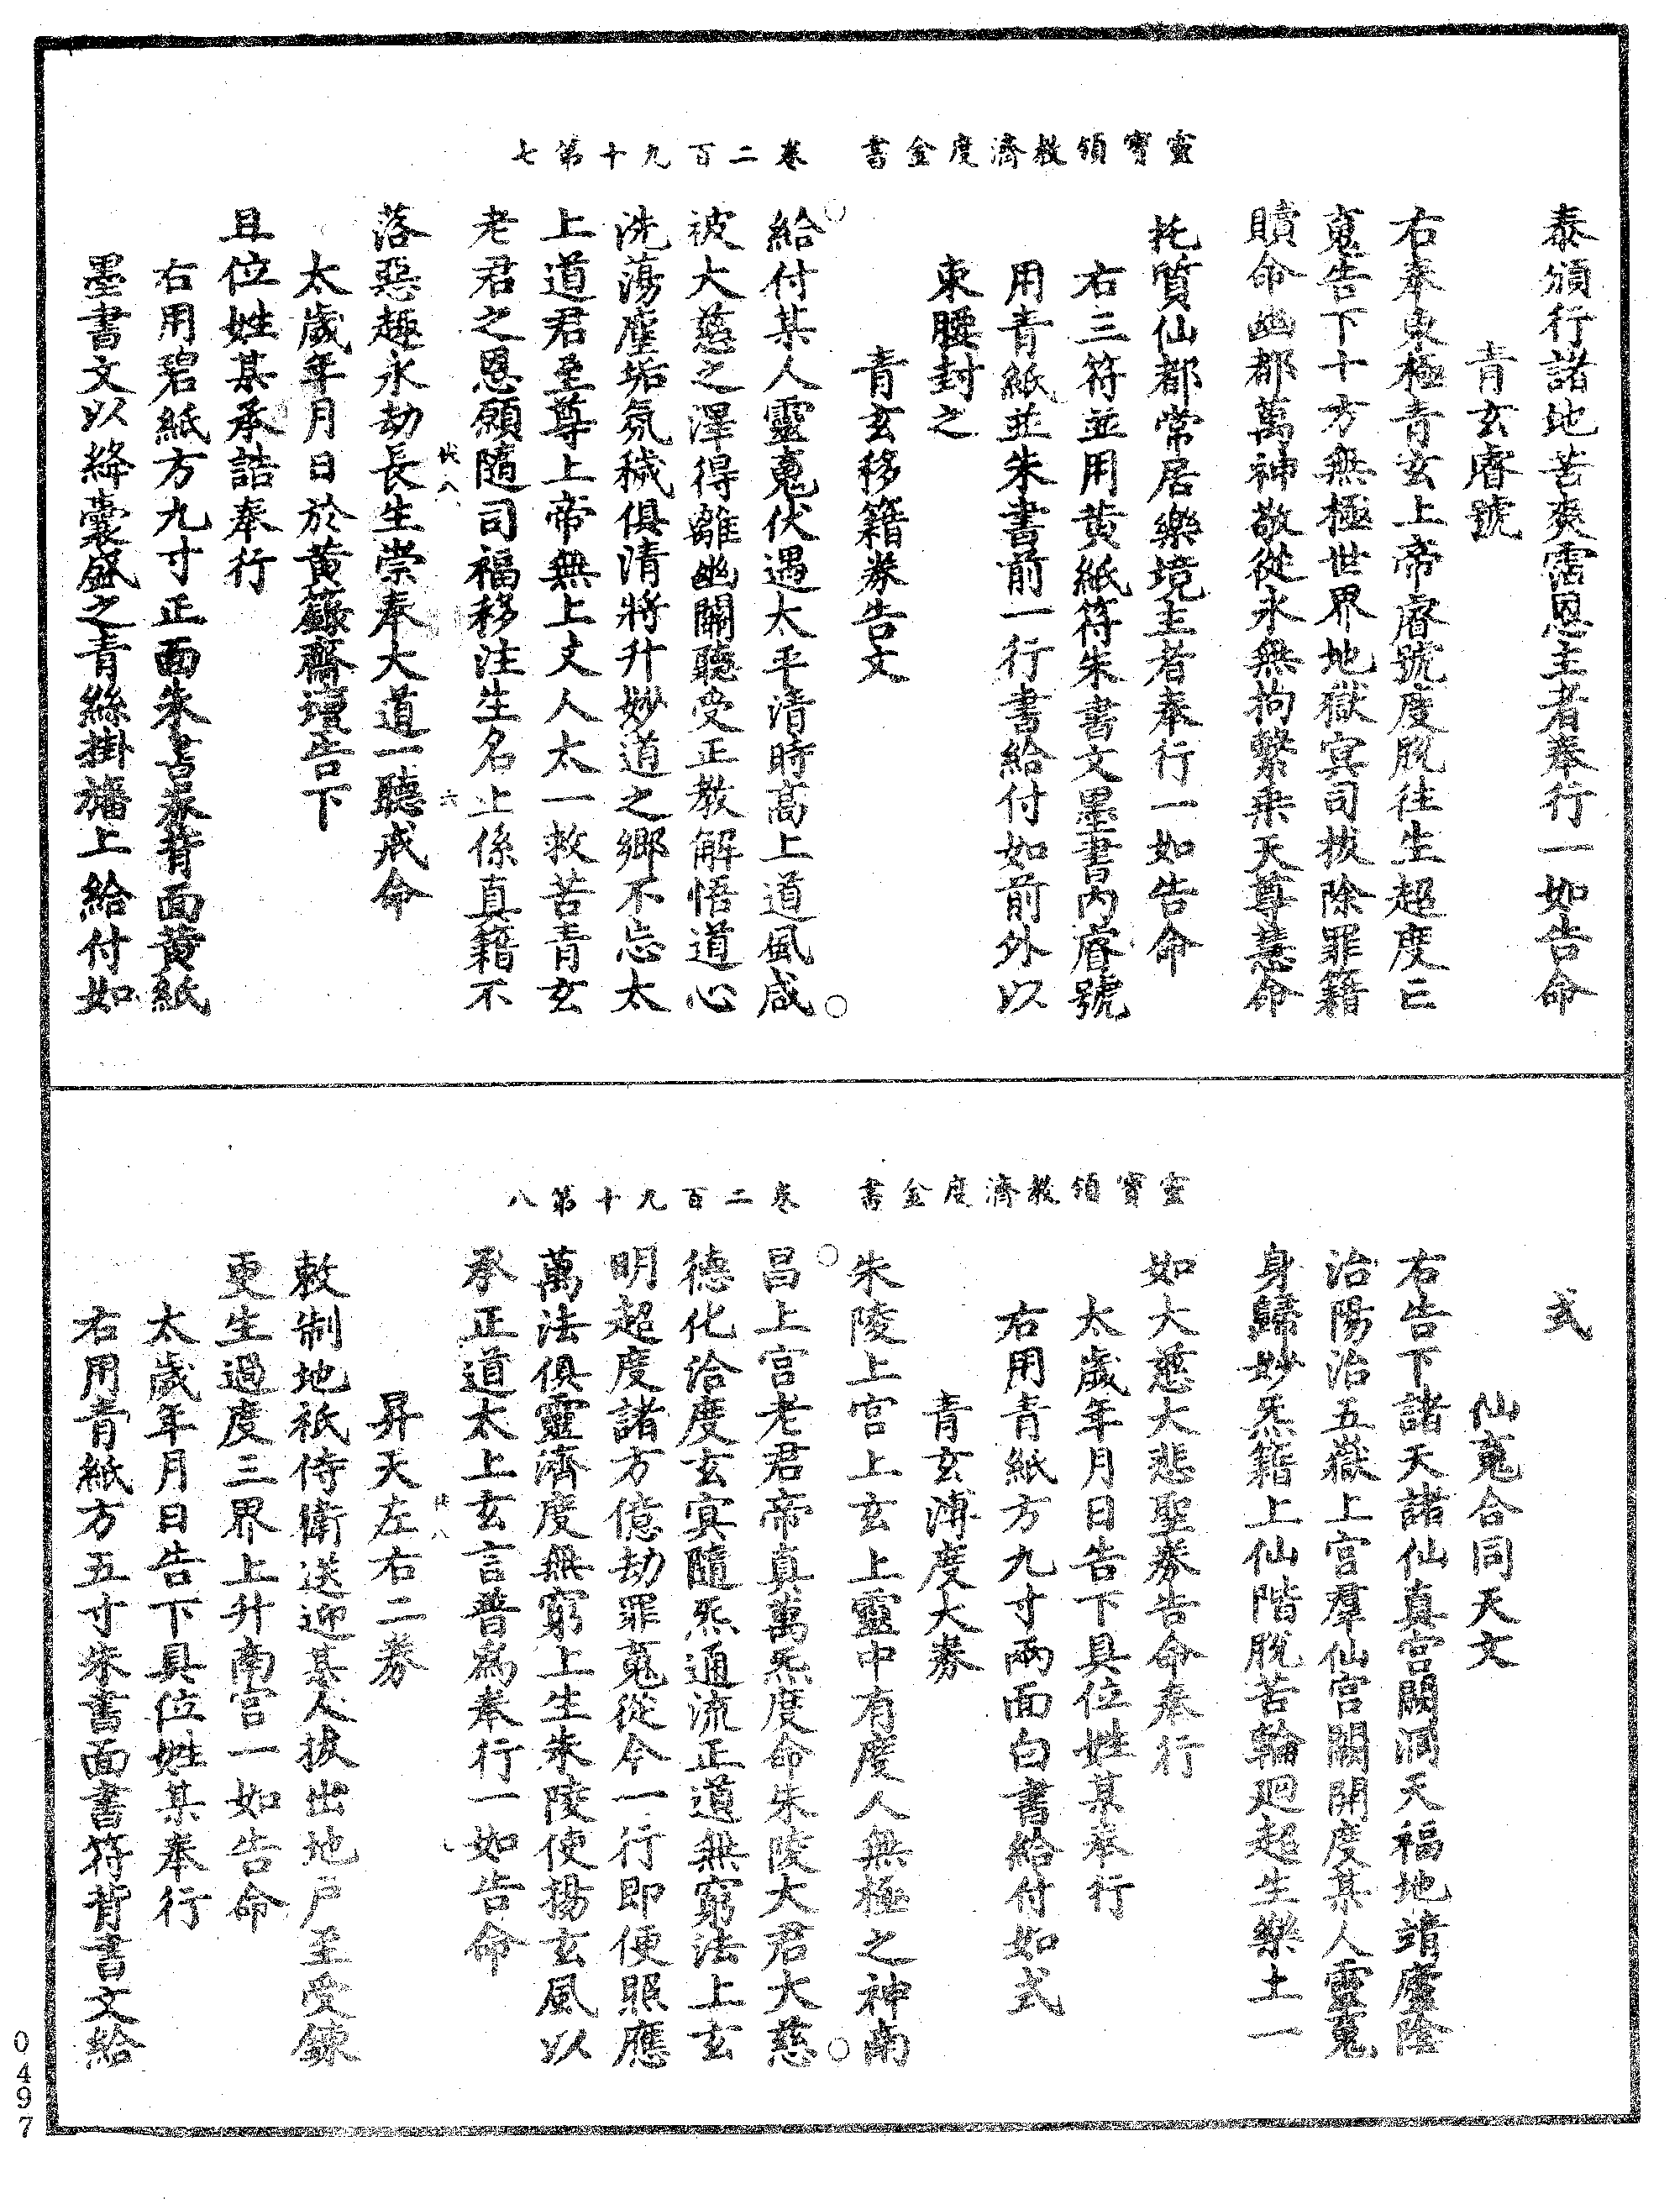 靈寶領教濟度金書　卷二百九十第七
泰頒行諸地苦爽霑恩主者奉行一如告命
青玄睿號
右奉東極青玄上帝睿號度脫往生超度亡
䰟告下十方無極世界地獄冥司拔除罪籍
贖命幽都萬神敬從永無拘繫乘天尊慈命
托質仙都常居樂境主者奉行一如告命
右三符並用黃紙符朱書文墨書內睿號
用青紙並朱書前一行書給付如前外以
束腰封之
青玄移籍券告文
給付某人靈䰟伏遇太平清時高上道風咸
被大慈之澤得離幽關聽受正教解悟道心
洗蕩塵垢氛穢俱清將升妙道之鄉不忘太
上道君至尊上帝無上丈人太一救苦青玄
老君之恩願隨司福移注生名止係真籍不
落惡趣永劫長生崇奉大道一聽戒命
太歲年月日於黃籙齋壇告下
具位姓某承誥奉行
右用碧紙方九寸正面朱書篆背面黃紙
墨書文以絳囊盛之青絲掛旛上給付如
靈寶領教濟度金書　卷二百九十第八
式
仙䰟合同天文
右告下諸天諸仙真宮闕洞天福地靖廬陰
治陽治五嶽上宮羣仙宮闕開度某人靈䰟
身歸妙炁籍上仙階脫苦輪迴超生樂土一
如大慈大悲聖券告命奉行
太歲年月日告下具位姓某奉行
右用青紙方九寸兩面白書給付如式
青玄溥度大券
朱陵上宮上玄上靈中有度人無極之神南
昌上宮老君帝真萬炁度命朱陵大君大慈
德化洽度玄冥隨炁通流正道無窮法上玄
明超度諸方億劫罪䰟從今一行即便照應
萬法俱靈濟度無窮上生朱陵使揚玄風以
承正道太上玄言普為奉行一如告命
昇天左右二券
敕制地祇侍衛送迎某人拔出地戶王受鍊
更生過度三界上升南宮一如告命
太歲年月日告下具位姓某奉行
右用青紙方五寸朱書面書符背書文給
0497